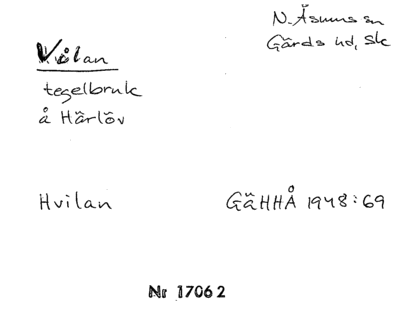 Vilan
tegelbruk
å Härlöv
N. Åsums sn
Gärds hd, Sk
Hvilan
GäHHÅ 1948:69
Nr 17062